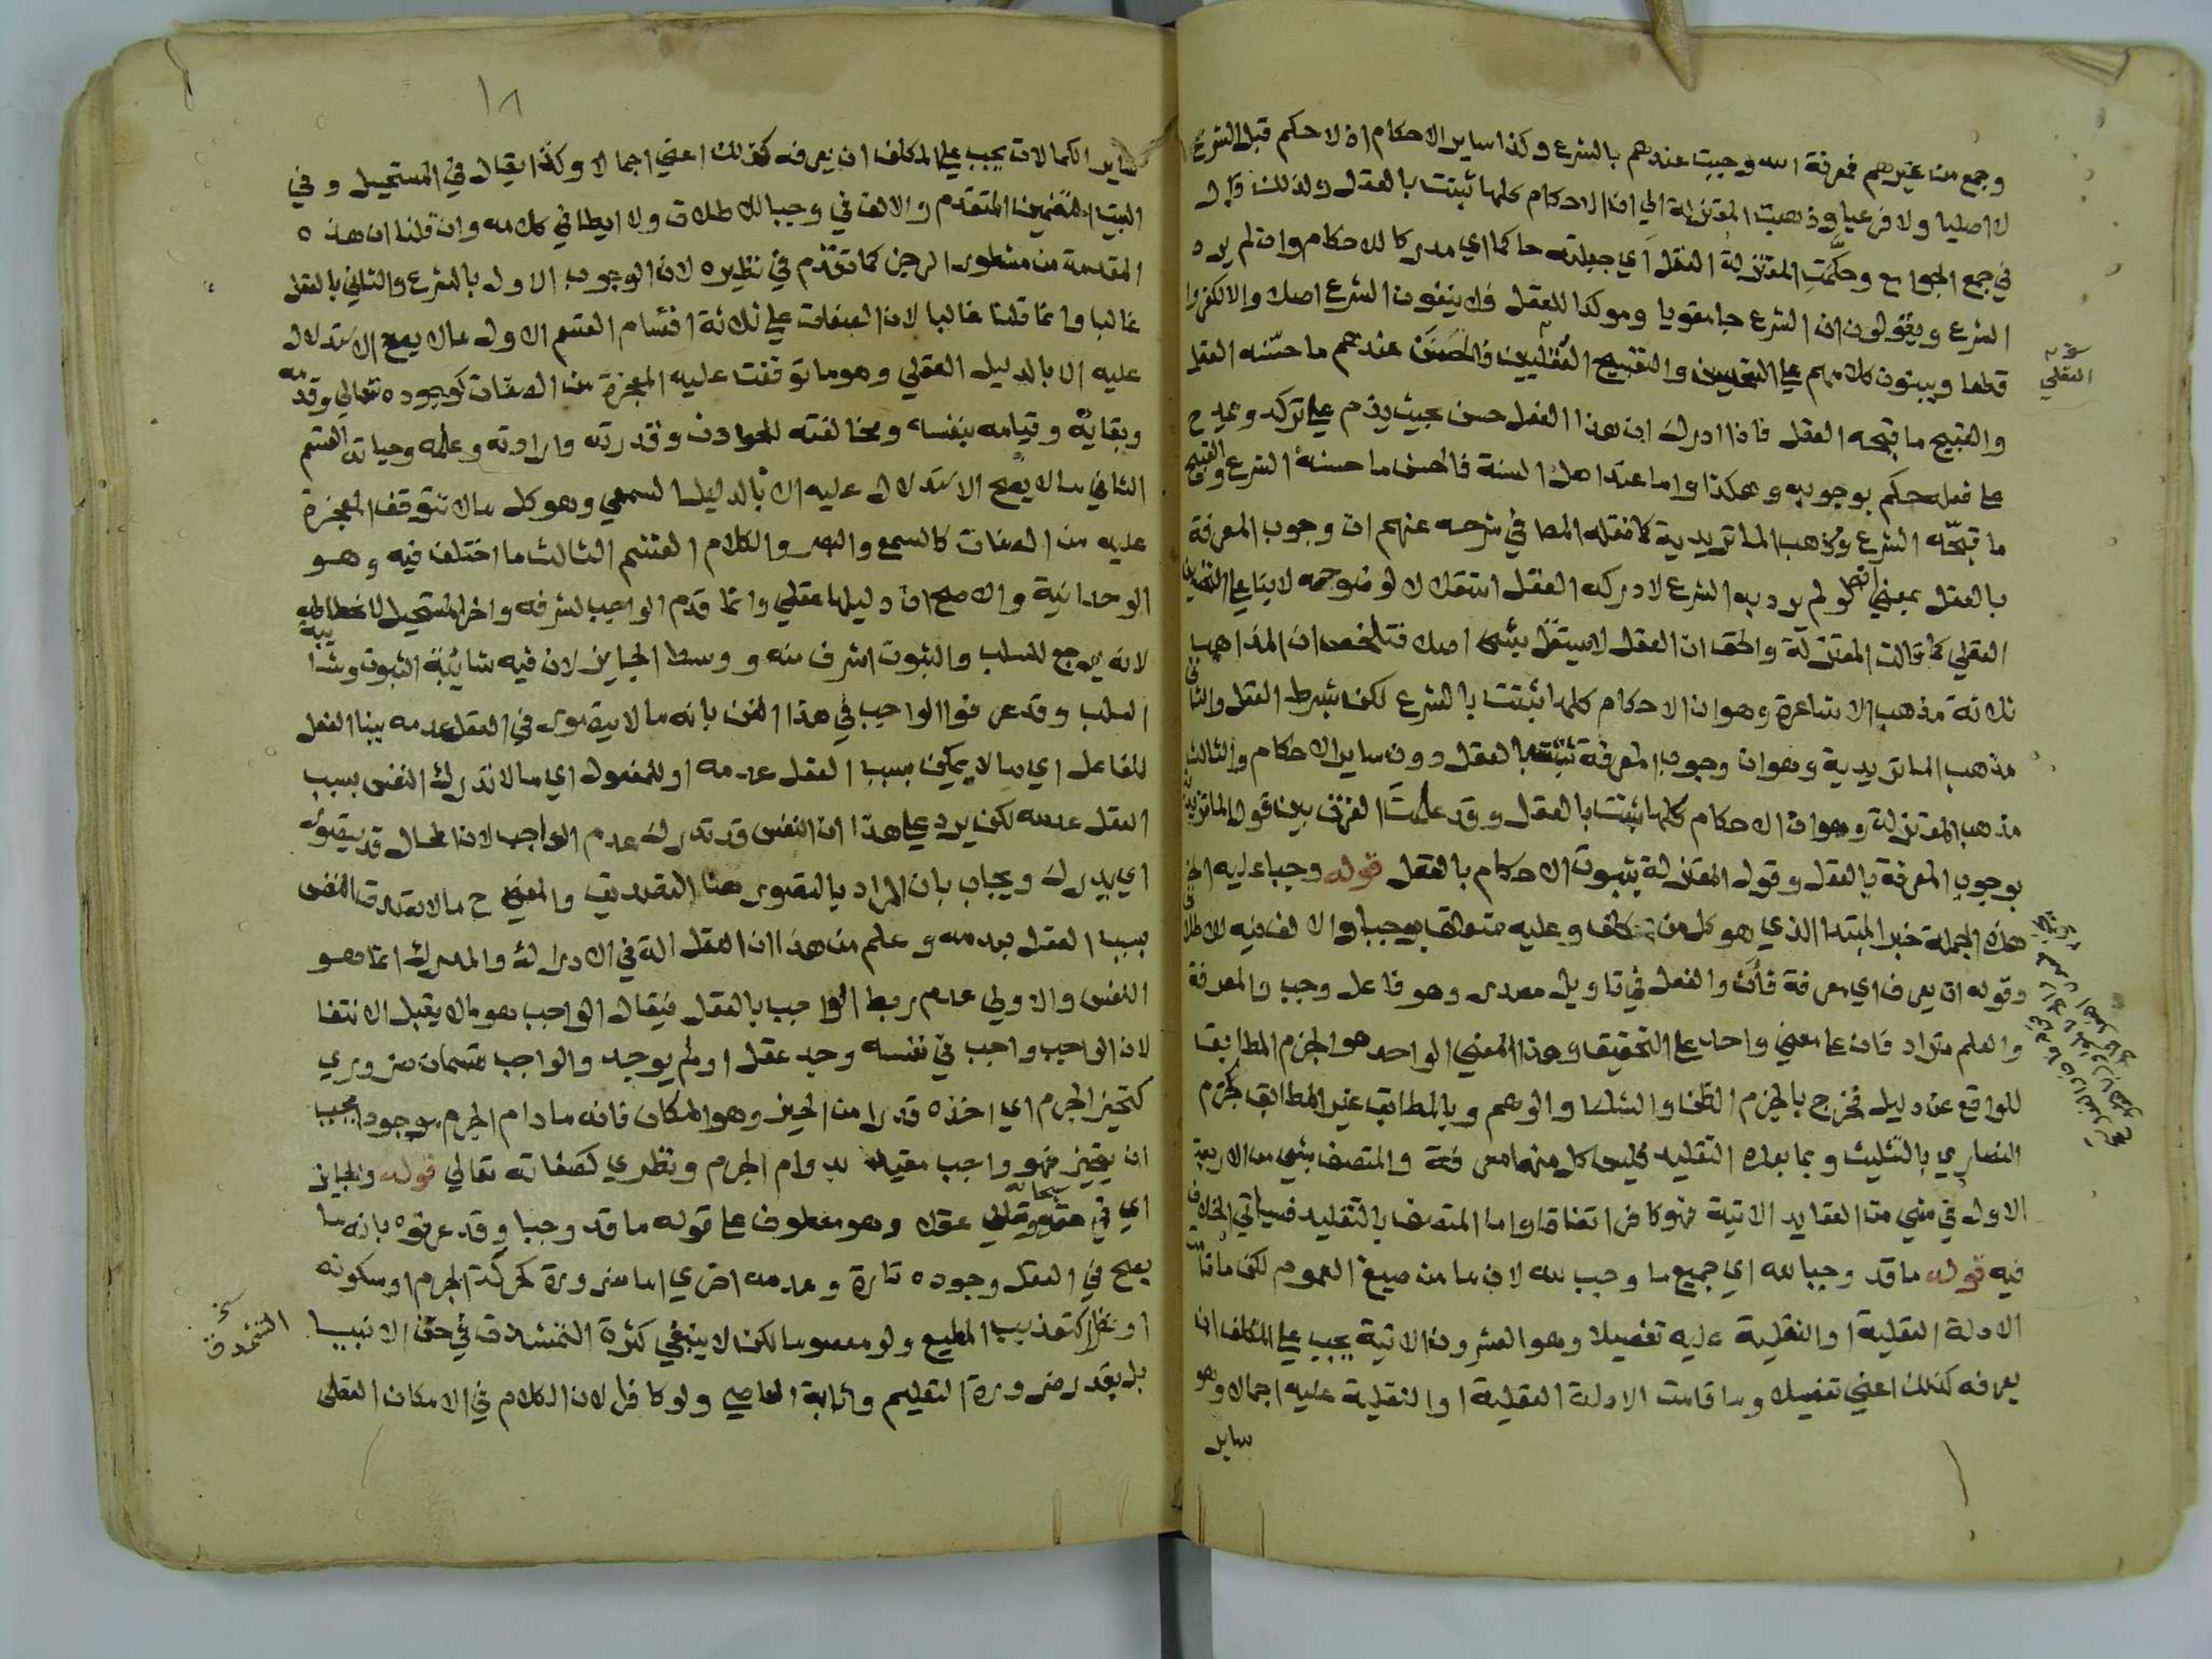 وجمع من غيرهم فمعرفة الله وجبت عندهم بالشرع وكذا ساير الاحكام اذ لا حكم قبل الشرع
لا اصليا ولا فرعيا وذهبت المعتزلة الي ان الاحكام كلها ثبتت بالعقل ولذلك قال
في جمع الجوامع وحكَّمتِ المعتزلة العقل اي جعلته حاكما اي مدركا للاحكام وان لم يرد
الشرع ويقولون ان الشرع جا مقويا وموكدا للعقل فلا ينفون الشرع اصلا والا لكفروا
قطعا ويبنون كلامهم علي التحسين والتقبيح العقليين فالحسن عندهم ما حسّنه العقل
والقبيح ما قبحه العقل فاذا ادرك ان هذا الفعل حسن بحيث يذم علي تركه ويمدح
علي فعله حكم بوجوبه وهكذا واما عند اهل السنة فالحسن ما حسنه الشرع والقبيح
ما قبّحه الشرع ومذهب الماتريدية كما نقله المص في شرحه عنهم ان وجوب المعرفة
بالعقل بمعني انه لو لم يرد به الشرع لادركه العقل استقلالا لوضوحه لا بناء علي التحسين
العقلي كما قالت المعتزلة والحق ان العقل لا يستقل بشي اصلا فتلخص ان المذاهب
ثلاثة مذهب الاشاعرة وهو ان الاحكام كلها ثبتت بالشرع لكن بشرط العقل والثاني
مذهب الماتريدية وهو ان وجوب المعرفة ثبت بالعقل دون ساير الاحكام والثالث
مذهب المعتزلة وهو ان الاحكام كلها ثبتت بالعقل وقد علمتَ الفرق بين قول الماتريدية
بوجوب المعرفة بالعقل وقول المعتزلة بثبوت الاحكام بالعقل قوله وجبا عليه الخ
هذه الجملة خبر المبتدا الذي هو كل من كلف وعليه متعلق بوجبا والالف فيه للاطلاق
وقوله ان يعرف اي معرفة فأن والفعل في تاويل مصدر وهو فاعل وجب والمعرفة
والعلم مترادفان علي معني واحد علي التحقيق وهذا المعني الواحد هو الجزم المطابق
للواقع عن دليل فخرج بالجزم الظن والشك والوهم وبالمطابق غير المطابق كجزم
النصاري بالتثليث وبما بعده التقليد فليس كل منها معرفة والمتصف بشي من الاربعة
الاول في شي من العقايد الاتية فهو كافر اتفاقا واما المتصف بالتقليد فسياتي الخلاف
فيه قوله ما قد وجبا لله اي جميع ما وجب لله لان ما من صيغ العموم لكن ما قامت
الادلة العقلية او النقلية عليه تفصيلا وهو العشرون الاتية يجب علي المكلف ان
يعرفه كذلك اعني تفصيلا وما قامت الادلة العقلية او النقلية عليه اجمالا وهو
ساير
العقلي
١٨
ساير الكمالات يجب علي المكلف ان يعرفه كذلك اعني اجمالا وكذا يقال في المستحيل وفي
البيت التضمين المتقدم والالف في وجبا للاطلاق ولا ايطا في كلامه وان قلنا ان هذه
المقدمة من مشطور الرجز كما تقدم في نظيره لان الوجوب الاول بالشرع والثاني بالعقل
غالبا وانما قلنا غالبا لان الصفات علي ثلاثة اقسام القسم الاول ما لا يصح الاستدلال
عليه الا بالدليل العقلي وهو ما توقفت عليه المعجزة من الصفات كوجوده تعالي وقدمه
وبقايه وقيامه بنفسه ومخالفته للحوادث وقدرته وارادته وعلمه وحياته القسم
الثاني ما لا يصح الاستدلال عليه الا بالدليل السمعي وهو كل ما لا تتوقف المعجزة
عليه من الصفات كالسمع والبصر والكلام القسم الثالث ما اختلف فيه وهو
الوحدانية والاصح ان دليلها عقلي وانما قدم الواجب لشرفه واخر المستحيل لانحطاطه
لانه يرجع للسلب والثبوت اشرف منه ووسط الجايز لان فيه شائبة الثبوت وشائبة
السلب وقد عرفوا الواجب في هذا الفن بانه ما لا يتصور في العقل عدمه ببنا الفعل
للفاعل اي ما لا يمكن بسبب العقل عدمه او للمفعول اي ما لا تدرك النفس بسبب
العقل عدمه لكن يرد علي هذا ان النفس قد تدرك عدم الواجب لان المحال قد يتصور
اي يدرك ويجاب بان المراد بالتصور هنا التصديق والمعني ح ما لا تصدق النفس
بسبب العقل بعدمه وعلم من هذا ان العقل الة في الادراك والمدرك انما هو
النفس والاولي عدم ربط الواجب بالعقل فيقال الواجب هو ما لا يقبل الانتفا
لان الواجب واجب في نفسه وجد عقل او لم يوجد والواجب قسمان ضروري
كتحيز الجرم اي اخذه قدرا من الحيز وهو المكان فانه ما دام الجرم موجودا يجب
ان يتحيز فهو واجب مقيد بدوام الجرم ونظري كصفاته تعالي قوله والجايز
اي في حقه سبحانه وتعالي عقلا وهو معطوف علي قوله ما قد وجبا وقد عرفوه بانه ما
يصح في العقل وجوده تارة وعدمه اخري اما ضرورة كحركة الجرم او سكونه
او نظرا كتعذيب المطيع ولو معصوما لكن لا ينبغي كثرة التمشدق في حق الانبيا
بل بقدر ضرورة التعليم واثابة العاصي ولو كافرا لان الكلام في الامكان العقلي